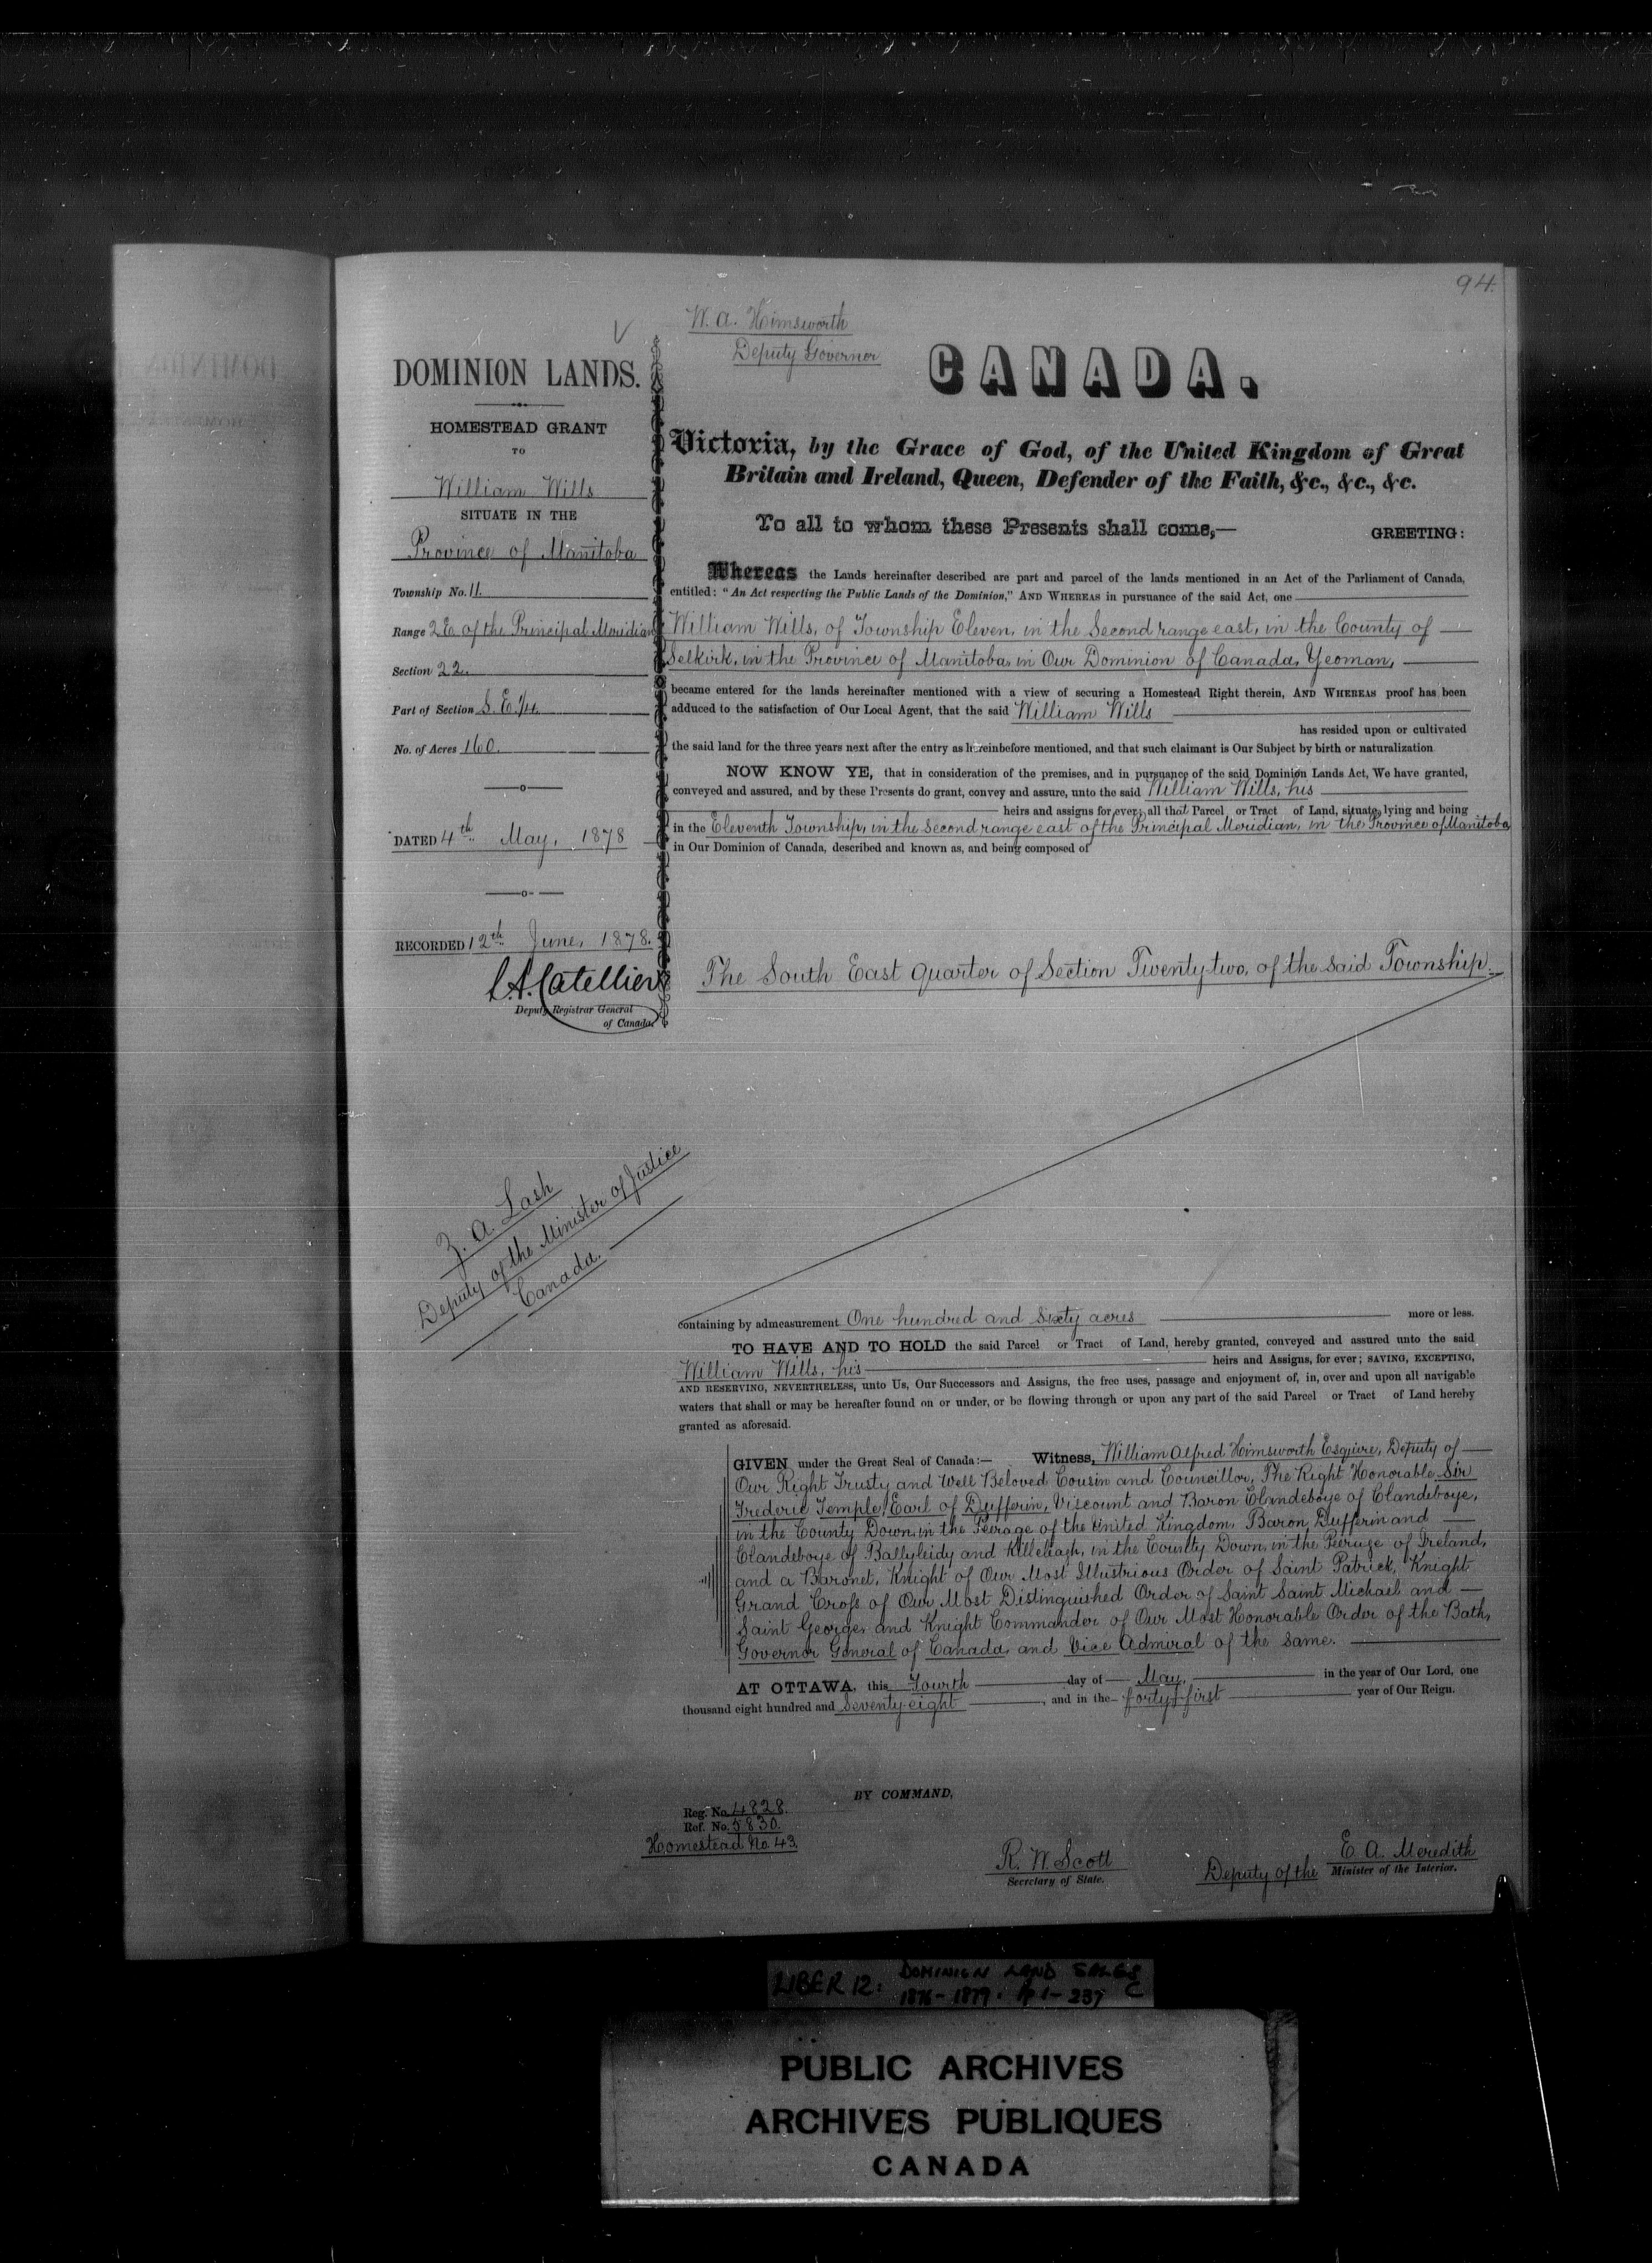 94.
W. A. Himsworth
Deputy Governor
DOMINION LANDS.
HOMESTEAD GRANT
TO
William Wills
SITUATE IN THE
Province of Manitoba
Township No. 11.
Range 2E of the Principal Meridian
Section 22.
Part of Section S. E. 1/4.
No. of Acres 160.
DATED 4th May, 1878
RECORDED 12th June, 1878.
L. A. Catellier
Deputy Registrar General
of Canada.
Z. A. Lash
Deputy of the Minister of Justice
Canada.
CANADA.
Victoria, by the Grace of God, of the United Kingdom of Great
Britain and Ireland, Queen, Defender of the Faith, &c., &c., &c.
To all to whom these Presents shall come,—
GREETING:
Whereas the Lands hereinafter described are part and parcel of the lands mentioned in an Act of the Parliament of Canada,
entitled: "An Act respecting the Public Lands of the Dominion," AND WHEREAS in pursuance of the said Act, one
William Wills, of Township Eleven, in the Second range east, in the County of
Selkirk, in the Province of Manitoba, in Our Dominion of Canada, Yeoman,
became entered for the lands hereinafter mentioned with a view of securing a Homestead Right therein, AND WHEREAS proof has been
adduced to the satisfaction of Our Local Agent, that the said William Wills
has resided upon or cultivated
the said land for the three years next after the entry as hereinbefore mentioned, and that such claimant is Our Subject by birth or naturalization
NOW KNOW YE, that in consideration of the premises, and in pursuance of the said Dominion Lands Act, We have granted,
conveyed and assured, and by these Presents do grant, convey and assure, unto the said William Wills, his
heirs and assigns for ever; all that Parcel or Tract of Land, situate, lying and being
in the Eleventh Township, in the Second range east of the Principal Meridian, in the Province of Manitoba
in Our Dominion of Canada, described and known as, and being composed of
The South East quarter of Section Twenty two, of the said Township.
containing by admeasurement One hundred and Sixty acres more or less.
TO HAVE AND TO HOLD the said Parcel or Tract of Land, hereby granted, conveyed and assured unto the said
William Wills, his heirs and Assigns, for ever; SAVING, EXCEPTING,
AND RESERVING, NEVERTHELESS, unto Us, Our Successors and Assigns, the free uses, passage and enjoyment of, in, over and upon all navigable
waters that shall or may be hereafter found on or under, or be flowing through or upon any part of the said Parcel or Tract of Land hereby
granted as aforesaid.
GIVEN under the Great Seal of Canada:— Witness, William Alfred Himsworth Esquire, Deputy of
Our Right Trusty and Well Beloved Cousin and Councillor, The Right Honorable Sir
Frederic Temple, Earl of Dufferin, Viscount and Baron Clandeboye of Clandeboye,
in the County Down, in the Peerage of the United Kingdom, Baron Dufferin and
Clandeboye of Ballyleidy and Killeleagh, in the County Down, in the Peerage of Ireland,
and a Baronet, Knight of Our Most Illustrious Order of Saint Patrick, Knight
Grand Cross of Our Most Distinguished Order of Saint Saint Michael and
Saint George, and Knight Commander of Our Most Honorable Order of the Bath,
Governor General of Canada, and Vice Admiral of the same.
AT OTTAWA, this Fourth day of May, in the year of Our Lord, one
thousand eight hundred and Seventy eight, and in the forty-first year of Our Reign.
BY COMMAND,
Reg. No. 4828.
Ref. No. 5830.
Homestead No. 43.
R. W. Scott
Secretary of State.
E. A. Meredith
Deputy of the Minister of the Interior.
LIBER 12: DOMINION LAND SALES
1876-1879. pp 1-237 C
PUBLIC ARCHIVES
ARCHIVES PUBLIQUES
CANADA